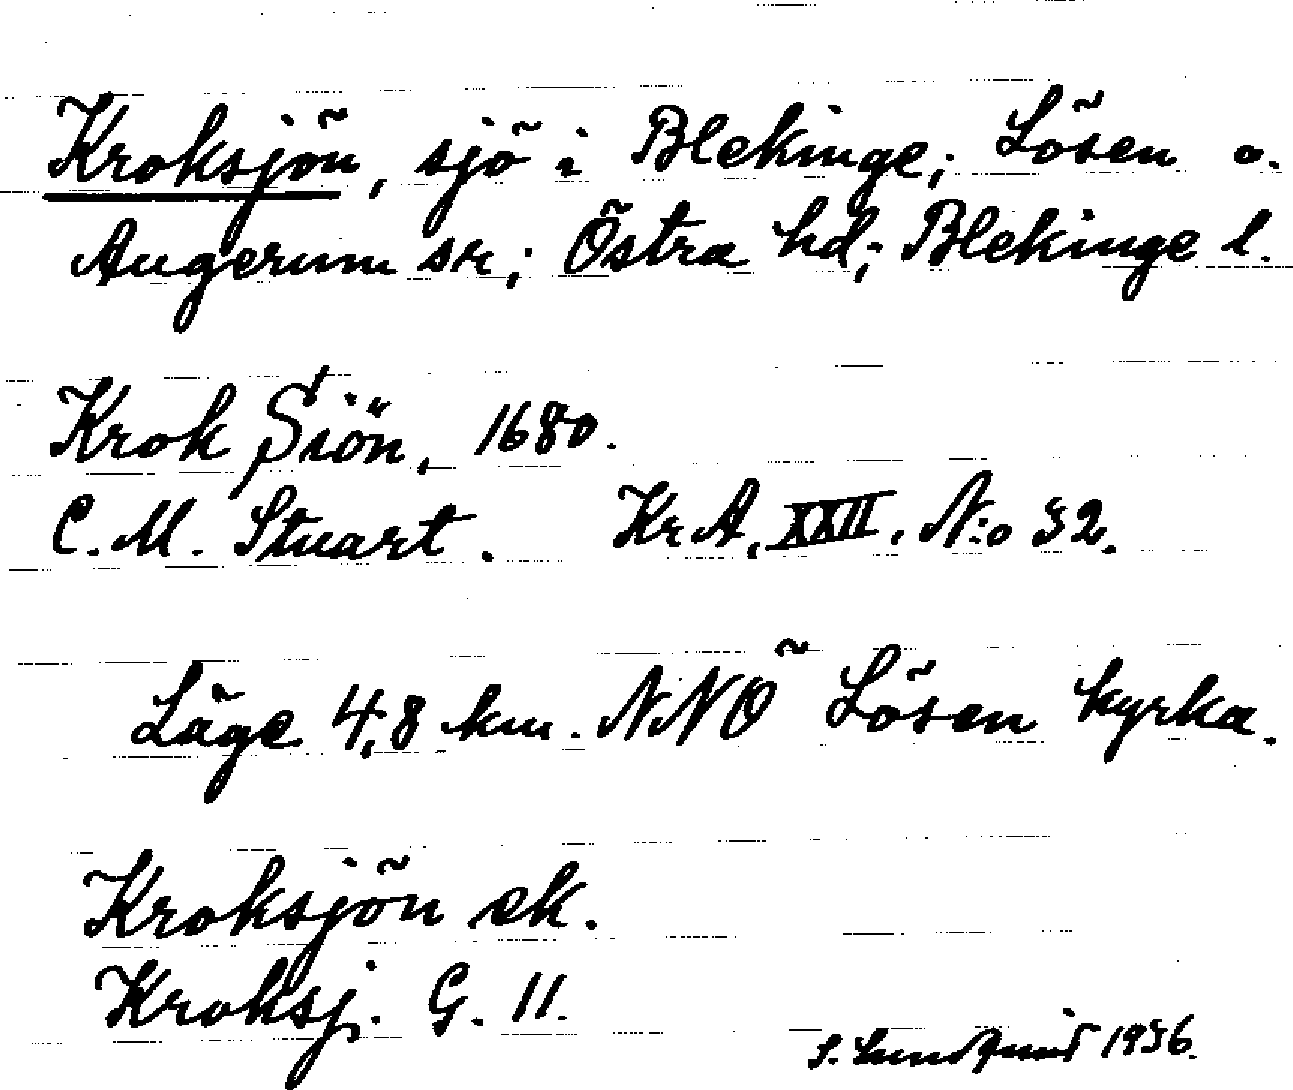 Kroksjön, sjö i Blekinge; Lösen o.
Augerum sn; Östra hd; Blekinge l.
Krok Siön, 1680.
C. M. Stuart. Kr.A. XXII. N:o 32.
Läge 4,8 km. NNO Lösen kyrka.
Kroksjön ek.
Kroksj. G. 11.
S. Lundqvist 1936.